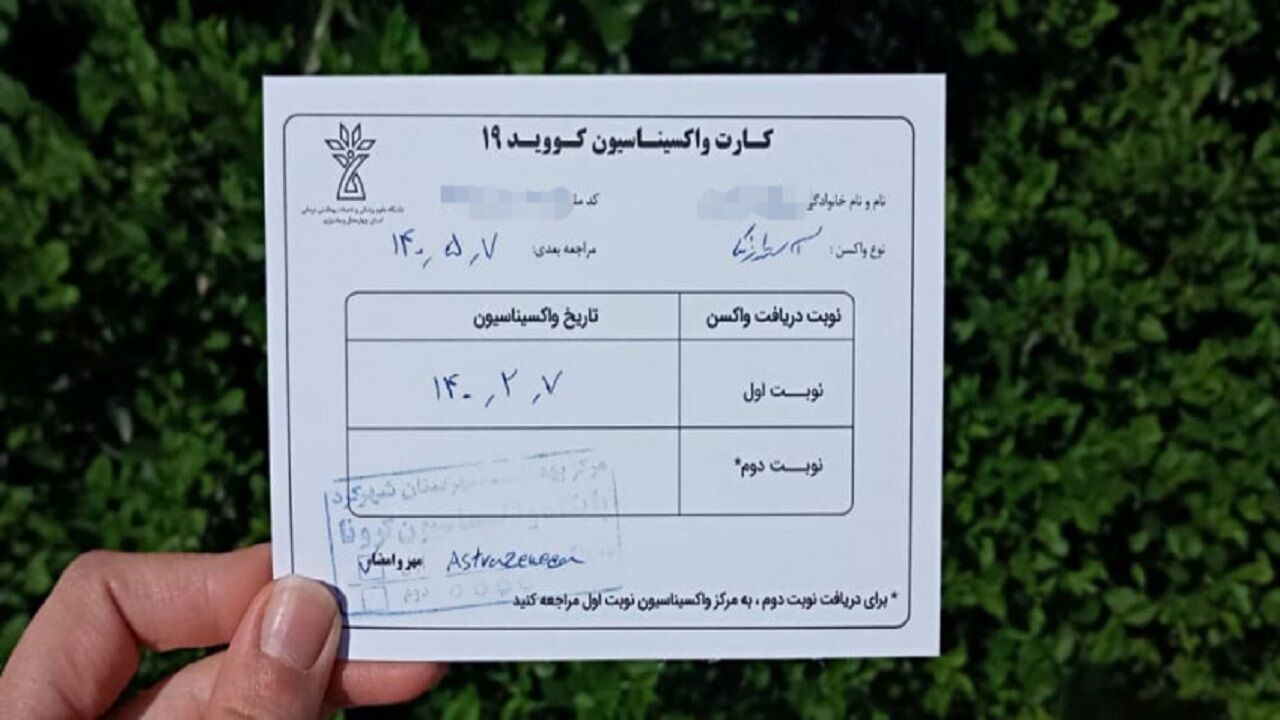 کارت واکسیناسیون کووید ۱۹
دانشگاه علوم پزشکی و خدمات بهداشتی درمانی
استان چهارمحال و بختیاری
نام و نام خانوادگی
کد مل
نوع واکسن : آسترازنکا
مراجعه بعدی: ۱۴۰۰٫۵٫۷
نوبت دریافت واکسن تاریخ واکسیناسیون
نوبت اول ۱۴۰۰٫۲٫۷
نوبت دوم*
مرکز شهرستان شهرکرد
کرونا
مهر و امضاء AstraZeneca
دوم
* برای دریافت نوبت دوم ، به مرکز واکسیناسیون نوبت اول مراجعه کنید